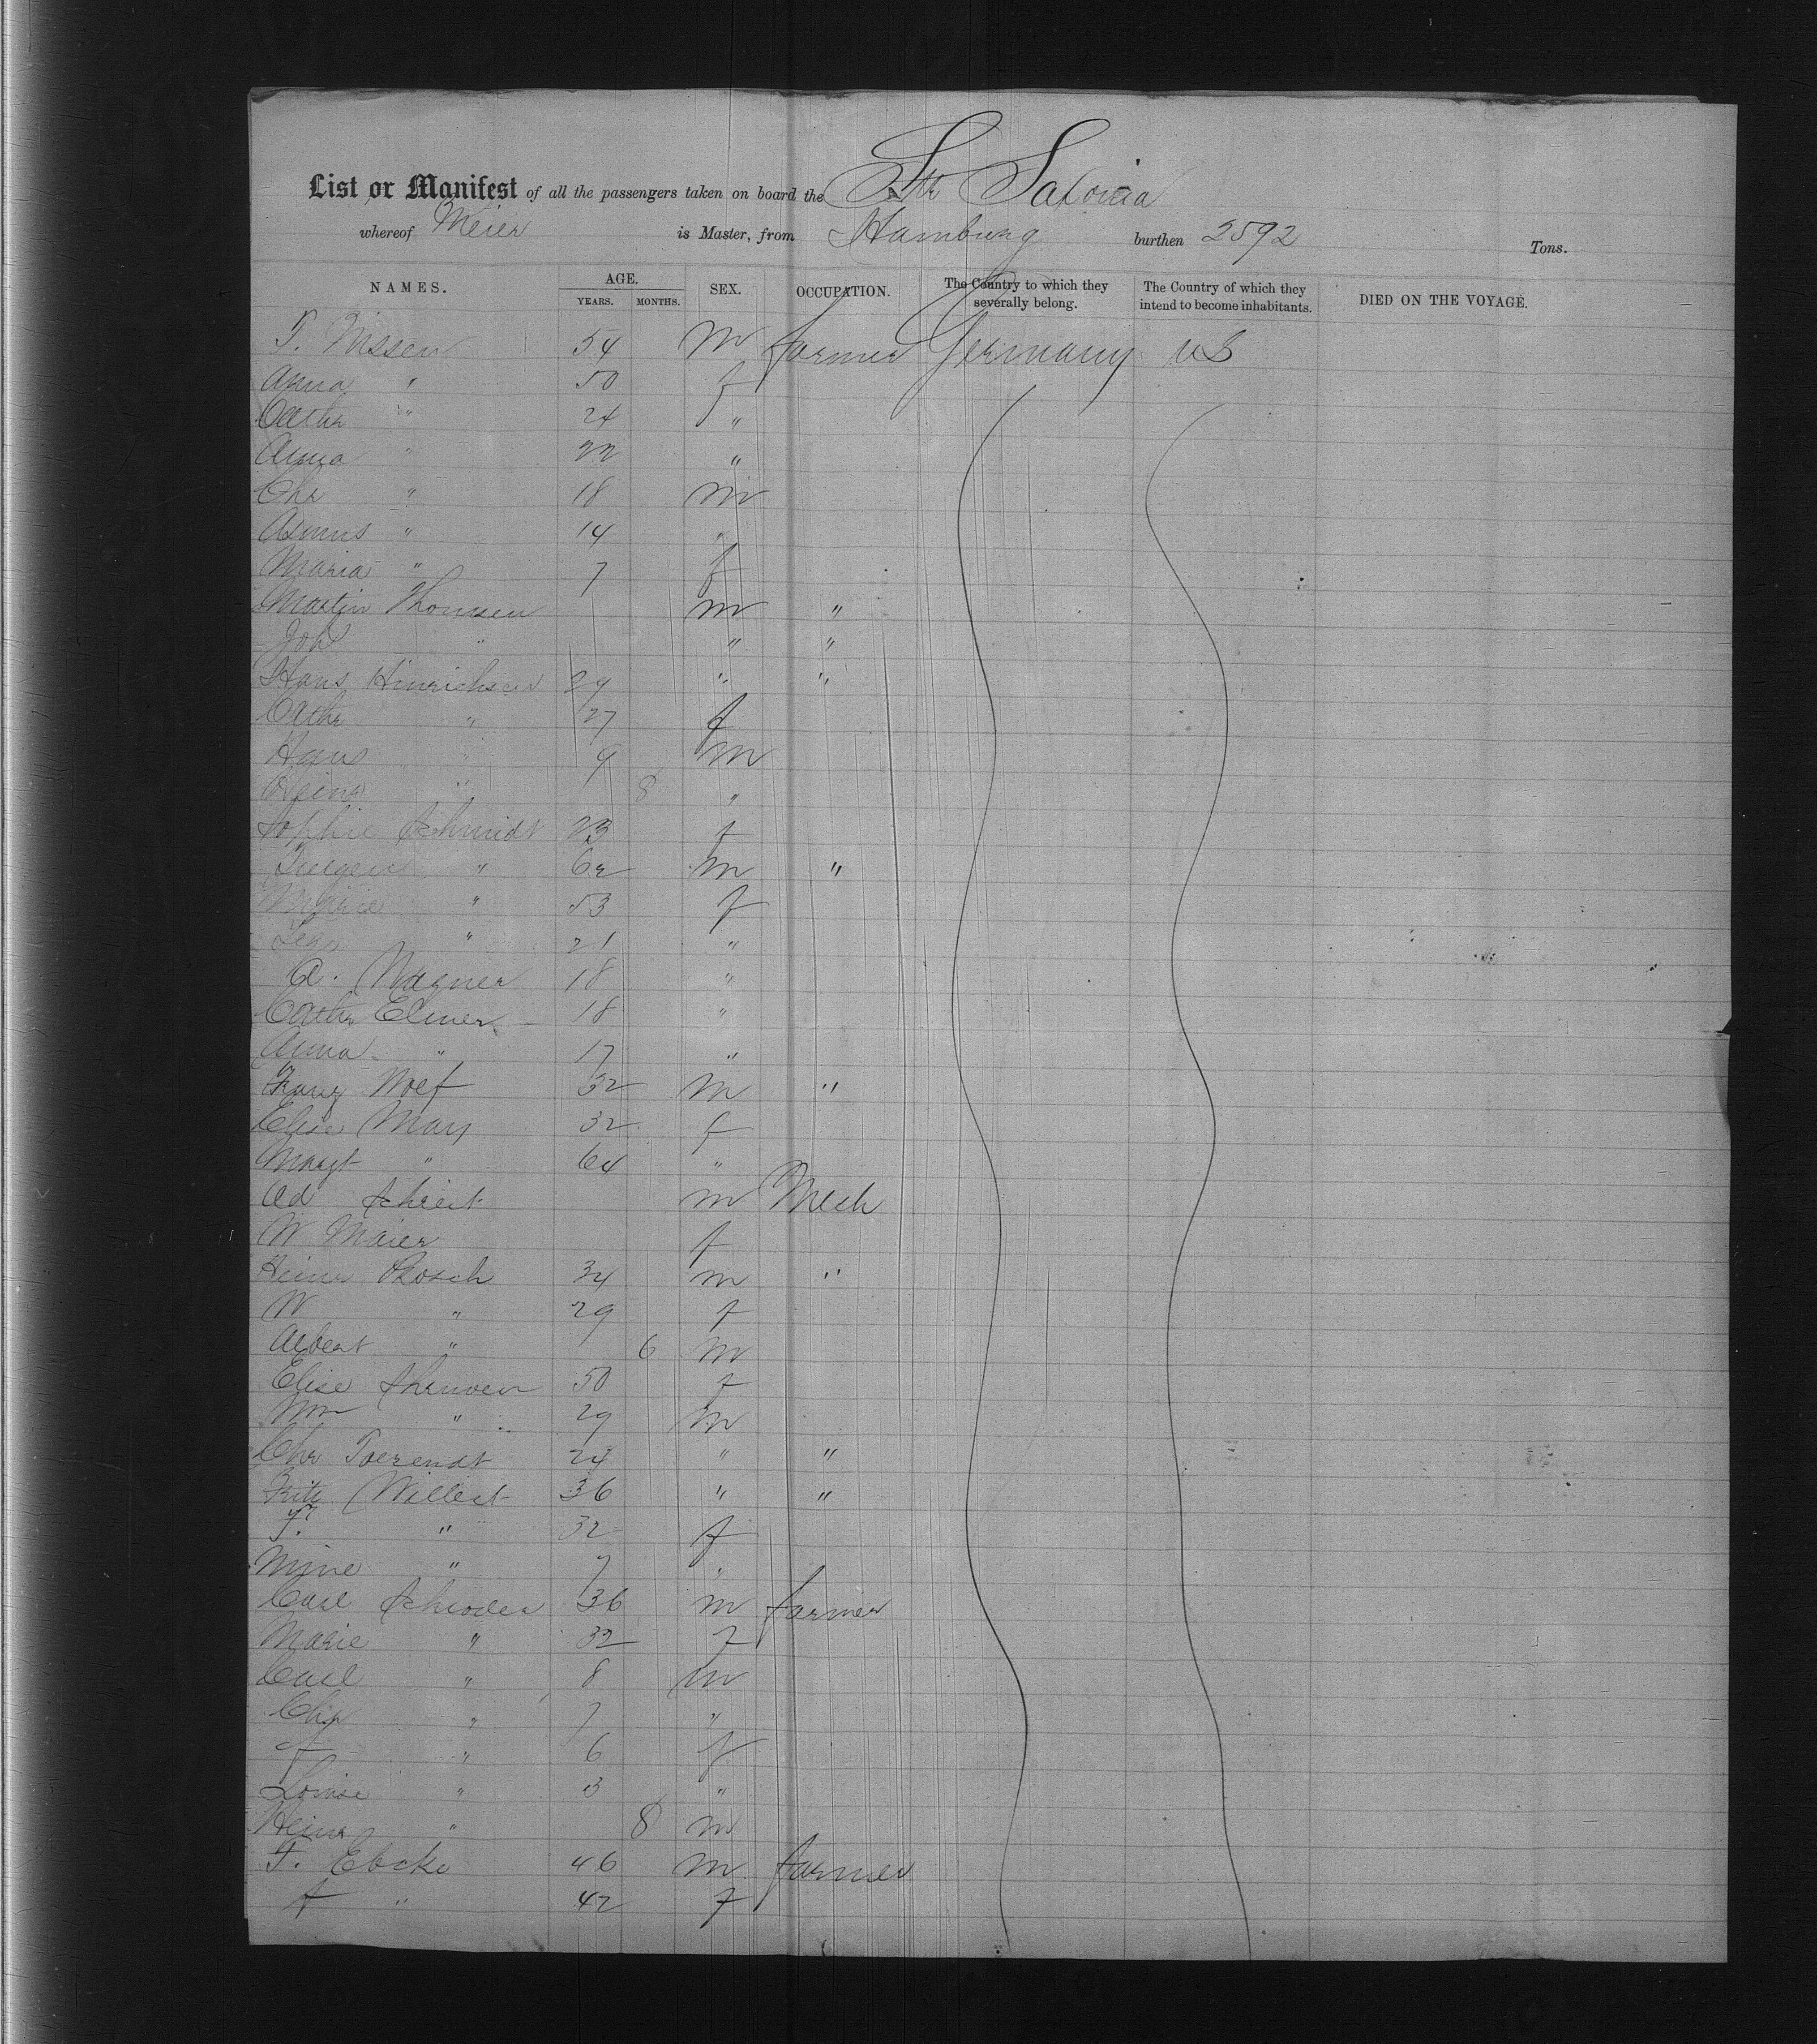 List or Manifest of all the passengers taken on board the Str Saxonia
whereof Meier is Master, from Hamburg burthen 2592 Tons.
NAMES. AGE. YEARS. MONTHS. SEX. OCCUPATION. The Country to which they severally belong. The Country of which they intend to become inhabitants. DIED ON THE VOYAGE.
T. Nissen 54 m farmer Germany US
Anna " 50 f
Cathr " 24 "
Anna " 22 "
Chr " 18 m
Asmus " 14 "
Maria " 7 f
Martin Thomsen m "
Joh " " "
Hans Hinrichsen 29 " "
Cathr " 27 f
Hans " 9 m
Heinr " 8 "
Sophie Schmidt 23 f
Juergen " 62 m "
Marie " 53 f
" 21 "
A. Wagner 18 "
Cathr Elmer 18 "
Anna " 17 "
Franz Wolf 32 m "
Elise May 32 f
Margt " 64 "
Ad m Mech
W Maier f
Heinr Rosch 34 m "
W " 29 f
Albert " 6 m
Elise 50 f
Wm " 29 m
Chr 24 " "
Fritz Willert 36 " "
F. " 32 f
Mine " 7 "
Carl Schroder 36 m farmer
Marie " 32 f
Carl " 8 m
Chr " 7 "
f " 6 f
Louise " 3 "
Heinr " 8 m
F. Ebcke 46 m farmer
f " 42 f